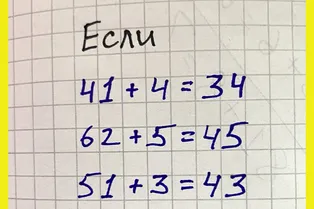 Если
41 + 4 = 34
62 + 5 = 45
51 + 3 = 43